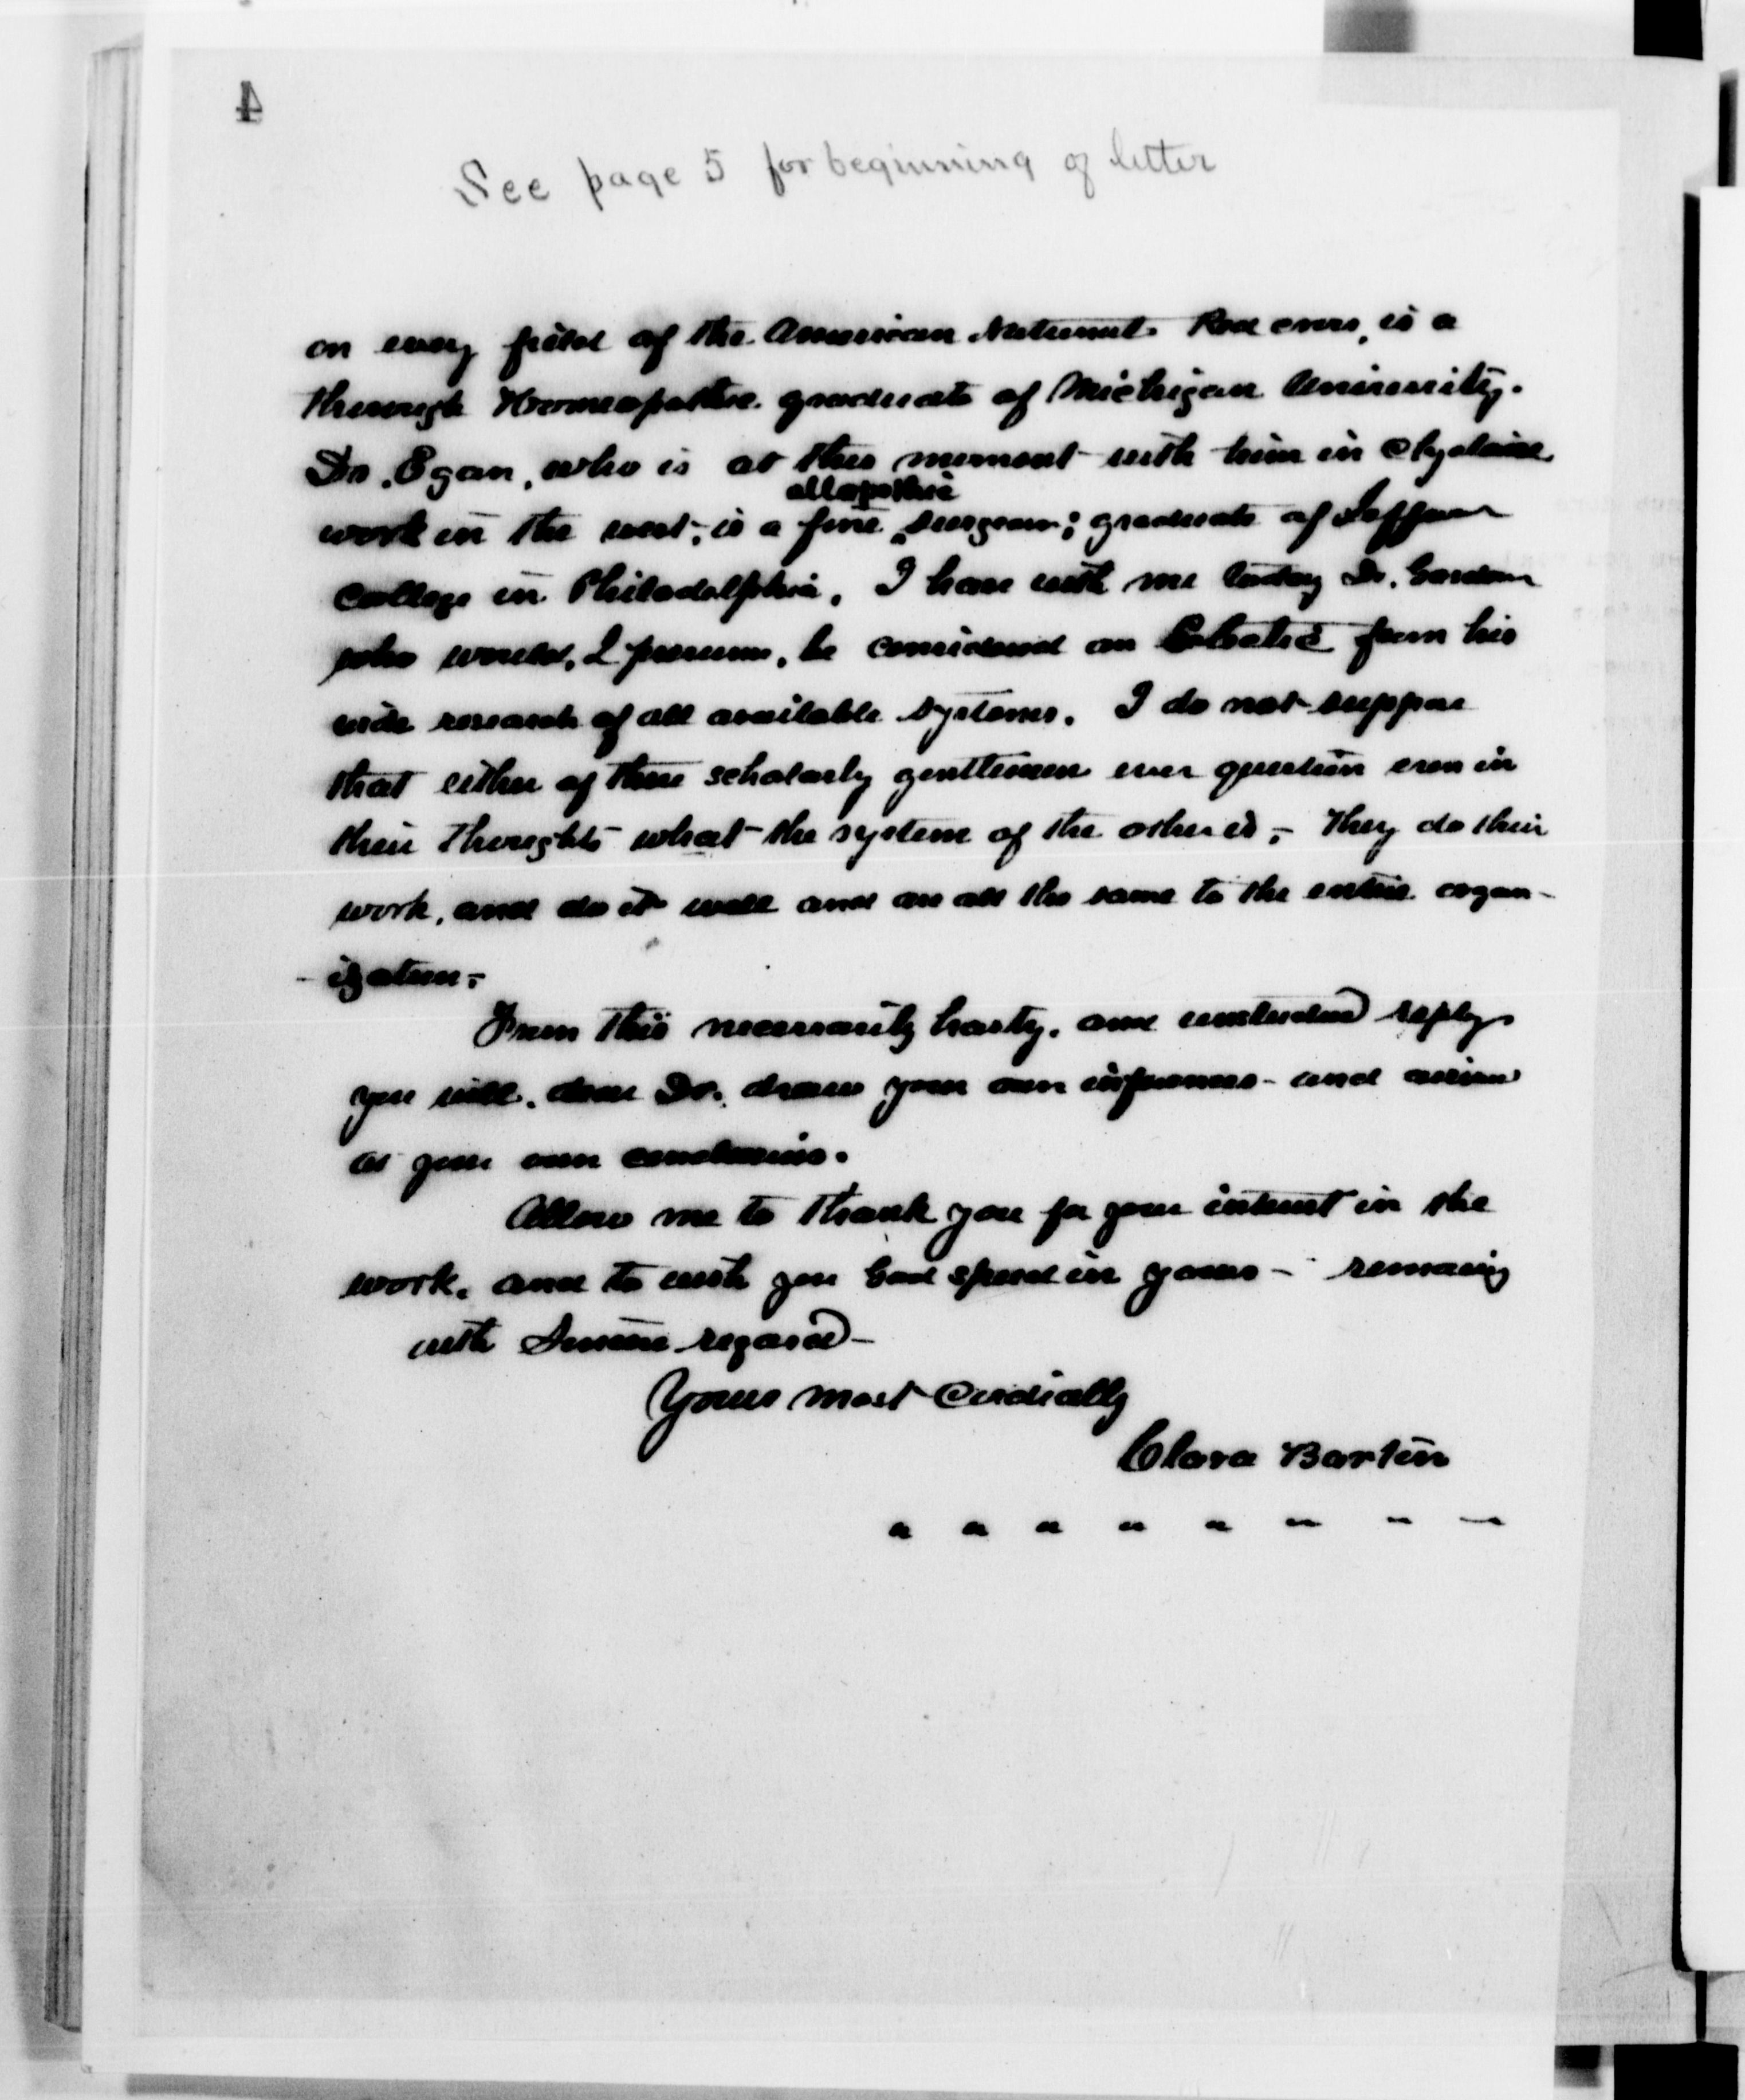 4
See page 5 for beginning of letter
on every field of the American National Red Cross, is a
thorough Homeopathic graduate of Michigan University.
Dr. Egan, who is at this moment with him in Cyclone
allopathic
work in the west, is a fine ^ surgeon; graduate of Jefferson
College in Philadelphia. I have with me today Dr. Gardner
who would, I presume, be considered an Eclectic from his
wide research of all available systems. I do not suppose
that either of these scholarly gentlemen ever question even in
their thoughts what the system of the other is, - They do their
work, and do it well and are all the same to the entire organ-
- ization.
From this necessarily hasty, and unstudied reply
you will, dear Dr. draw your own inferences - and arrive
at your own conclusions.
Allow me to thank you for your interest in the
work, and to wish you God speed in yours - remaing
with Sincere regard -
Yours most Cordially
Clara Barton